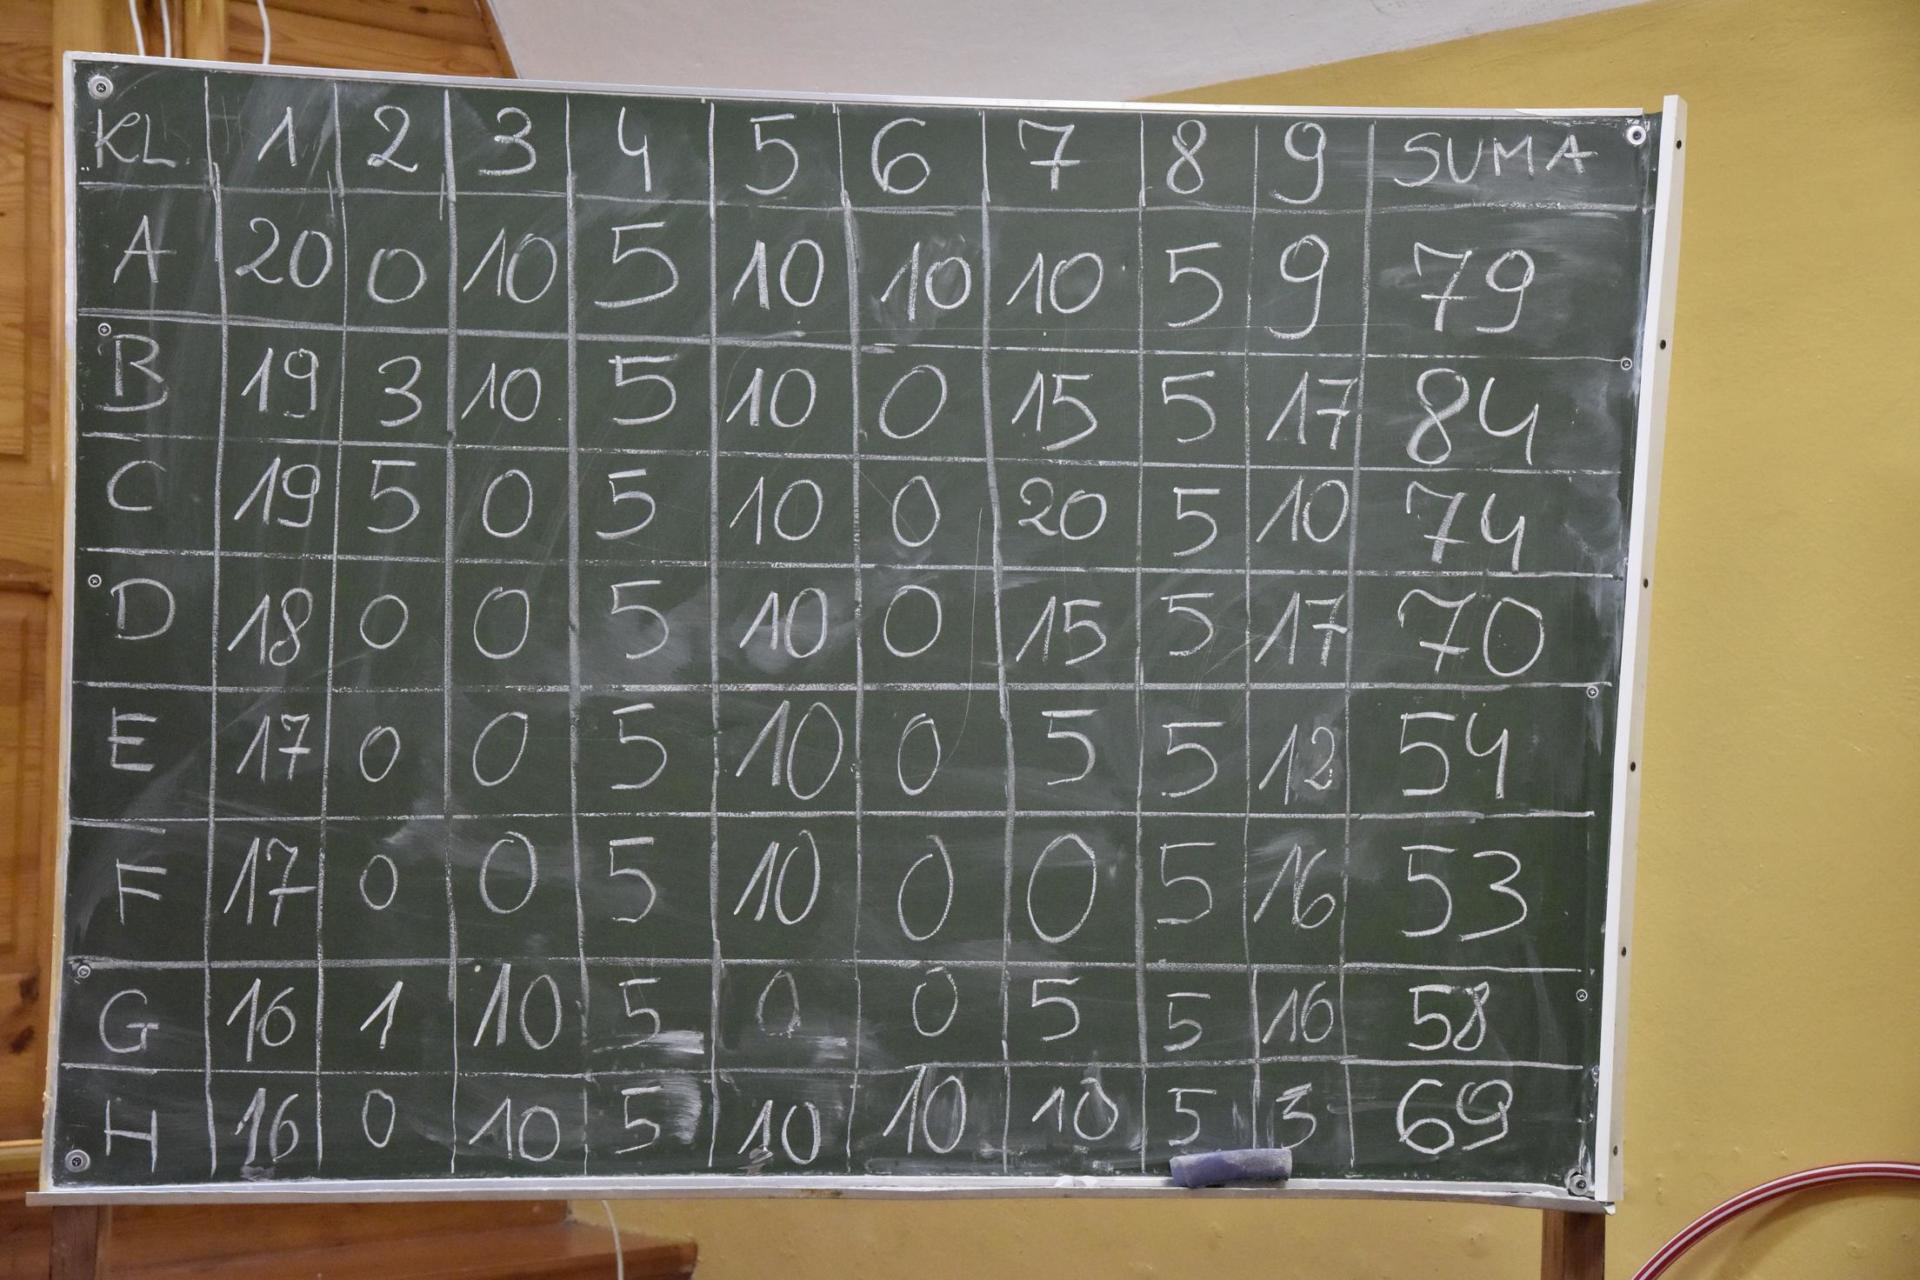 KL 1 2 3 4 5 6 7 8 9 SUMA
A 20 0 10 5 10 10 10 5 9 79
B 19 3 10 5 10 0 15 5 17 84
C 19 5 0 5 10 0 20 5 10 74
D 18 0 0 5 10 0 15 5 17 70
E 17 0 0 5 10 0 5 5 12 54
F 17 0 0 5 10 0 0 5 16 53
G 16 1 10 5 0 0 5 5 16 58
H 16 0 10 5 10 10 10 5 3 69